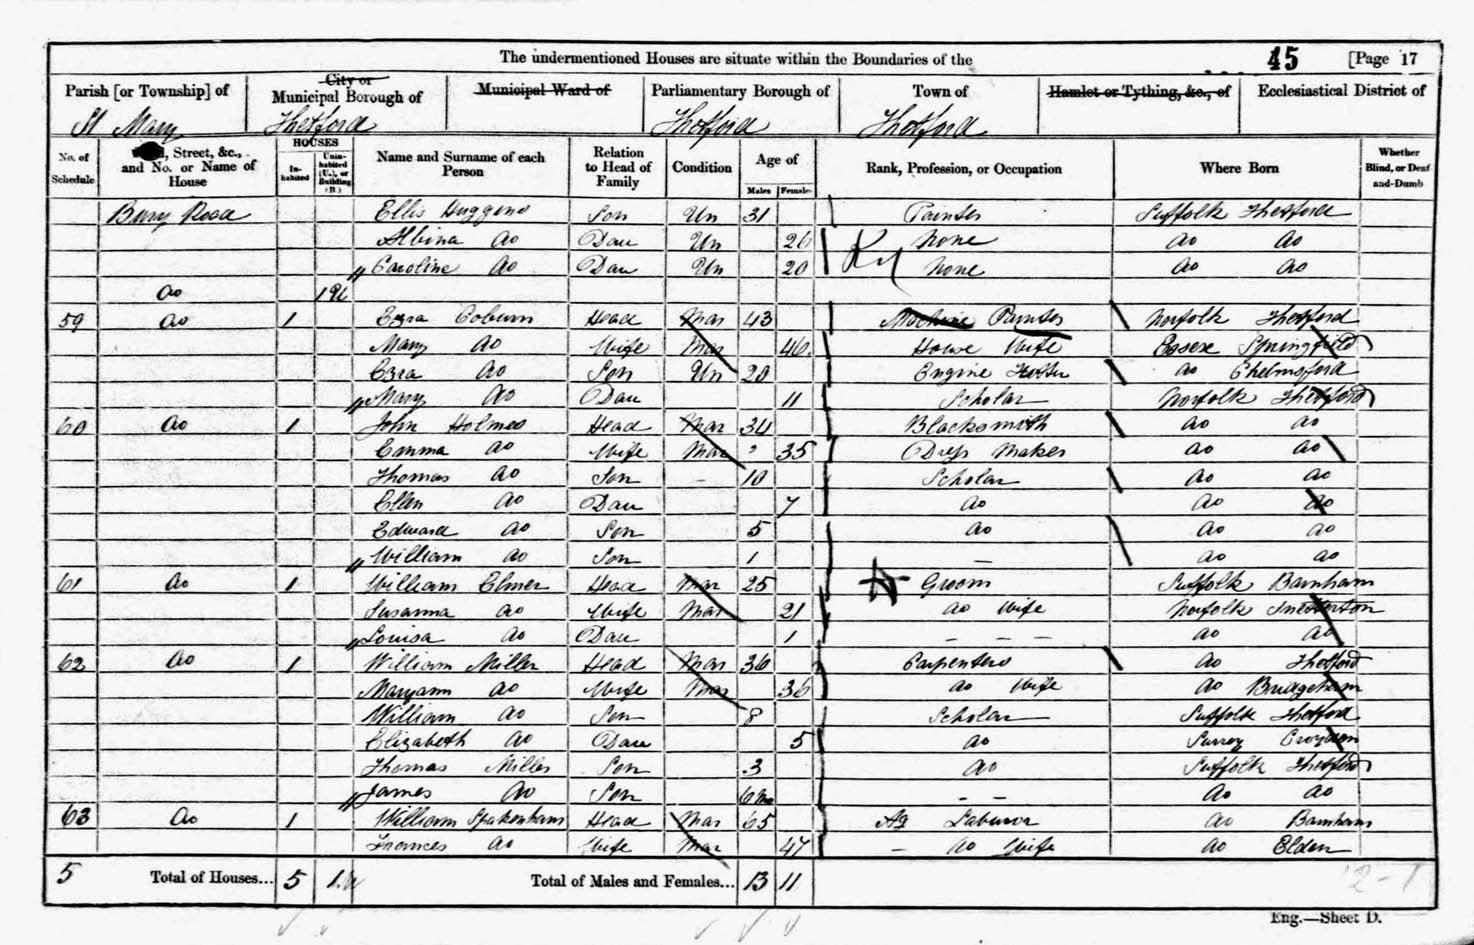 The undermentioned Houses are situate within the Boundaries of the 45 [Page 17
Parish [or Township] of City or Municipal Borough of Municipal Ward of Parliamentary Borough of Town of Hamlet or Tything, &c., of Ecclesiastical District of
St Mary Thetford Thetford Thetford
No. of Schedule Street, &c., and No. or Name of House HOUSES In-habited Unin-habited (U.), or Building (B.) Name and Surname of each Person Relation to Head of Family Condition Age of Males Females Rank, Profession, or Occupation Where Born Whether Blind, or Deaf-and-Dumb
Bury Road Ellis Huggins Son Un 31 Painter Suffolk Thetford
Albina do Dau Un 26 None do do
" Caroline do Dau Un 20 None do do
do 1 U
59 do 1 Ezra Coburn Head Mar 43 Machine Painter Norfolk Thetford
Mary do Wife Mar 46 House Wife Essex Springfield
Ezra do Son Un 20 Engine do Chelmsford
" Mary do Dau 11 Scholar Norfolk Thetford
60 do 1 John Holmes Head Mar 34 Blacksmith do do
Emma do Wife Mar " 35 Dress Maker do do
Thomas do Son - 10 Scholar do do
Ellen do Dau 7 do do do
Edward do Son 5 do do do
" William do Son 1 - do do
61 do 1 William Elmer Head Mar 25 Groom Suffolk Barnham
Susanna do Wife Mar 21 do Wife Norfolk
" Louisa do Dau 1 - - - do do
62 do 1 William Miller Head Mar 36 Carpenters do Thetford
Maryann do Wife Mar 36 do Wife do Bridgeham
William do Son 8 Scholar Suffolk Thetford
Elizabeth do Dau 5 do Surrey Croydon
Thomas Miller Son 3 do Suffolk Thetford
" James do Son 6 mo - - do do
63 do 1 William Spakenham Head Mar 65 Ag Laburor do Barnham
Frances do Wife Mar 47 - do Wife do Elden
5 Total of Houses... 5 1 U Total of Males and Females... 13 11
Eng.—Sheet D.